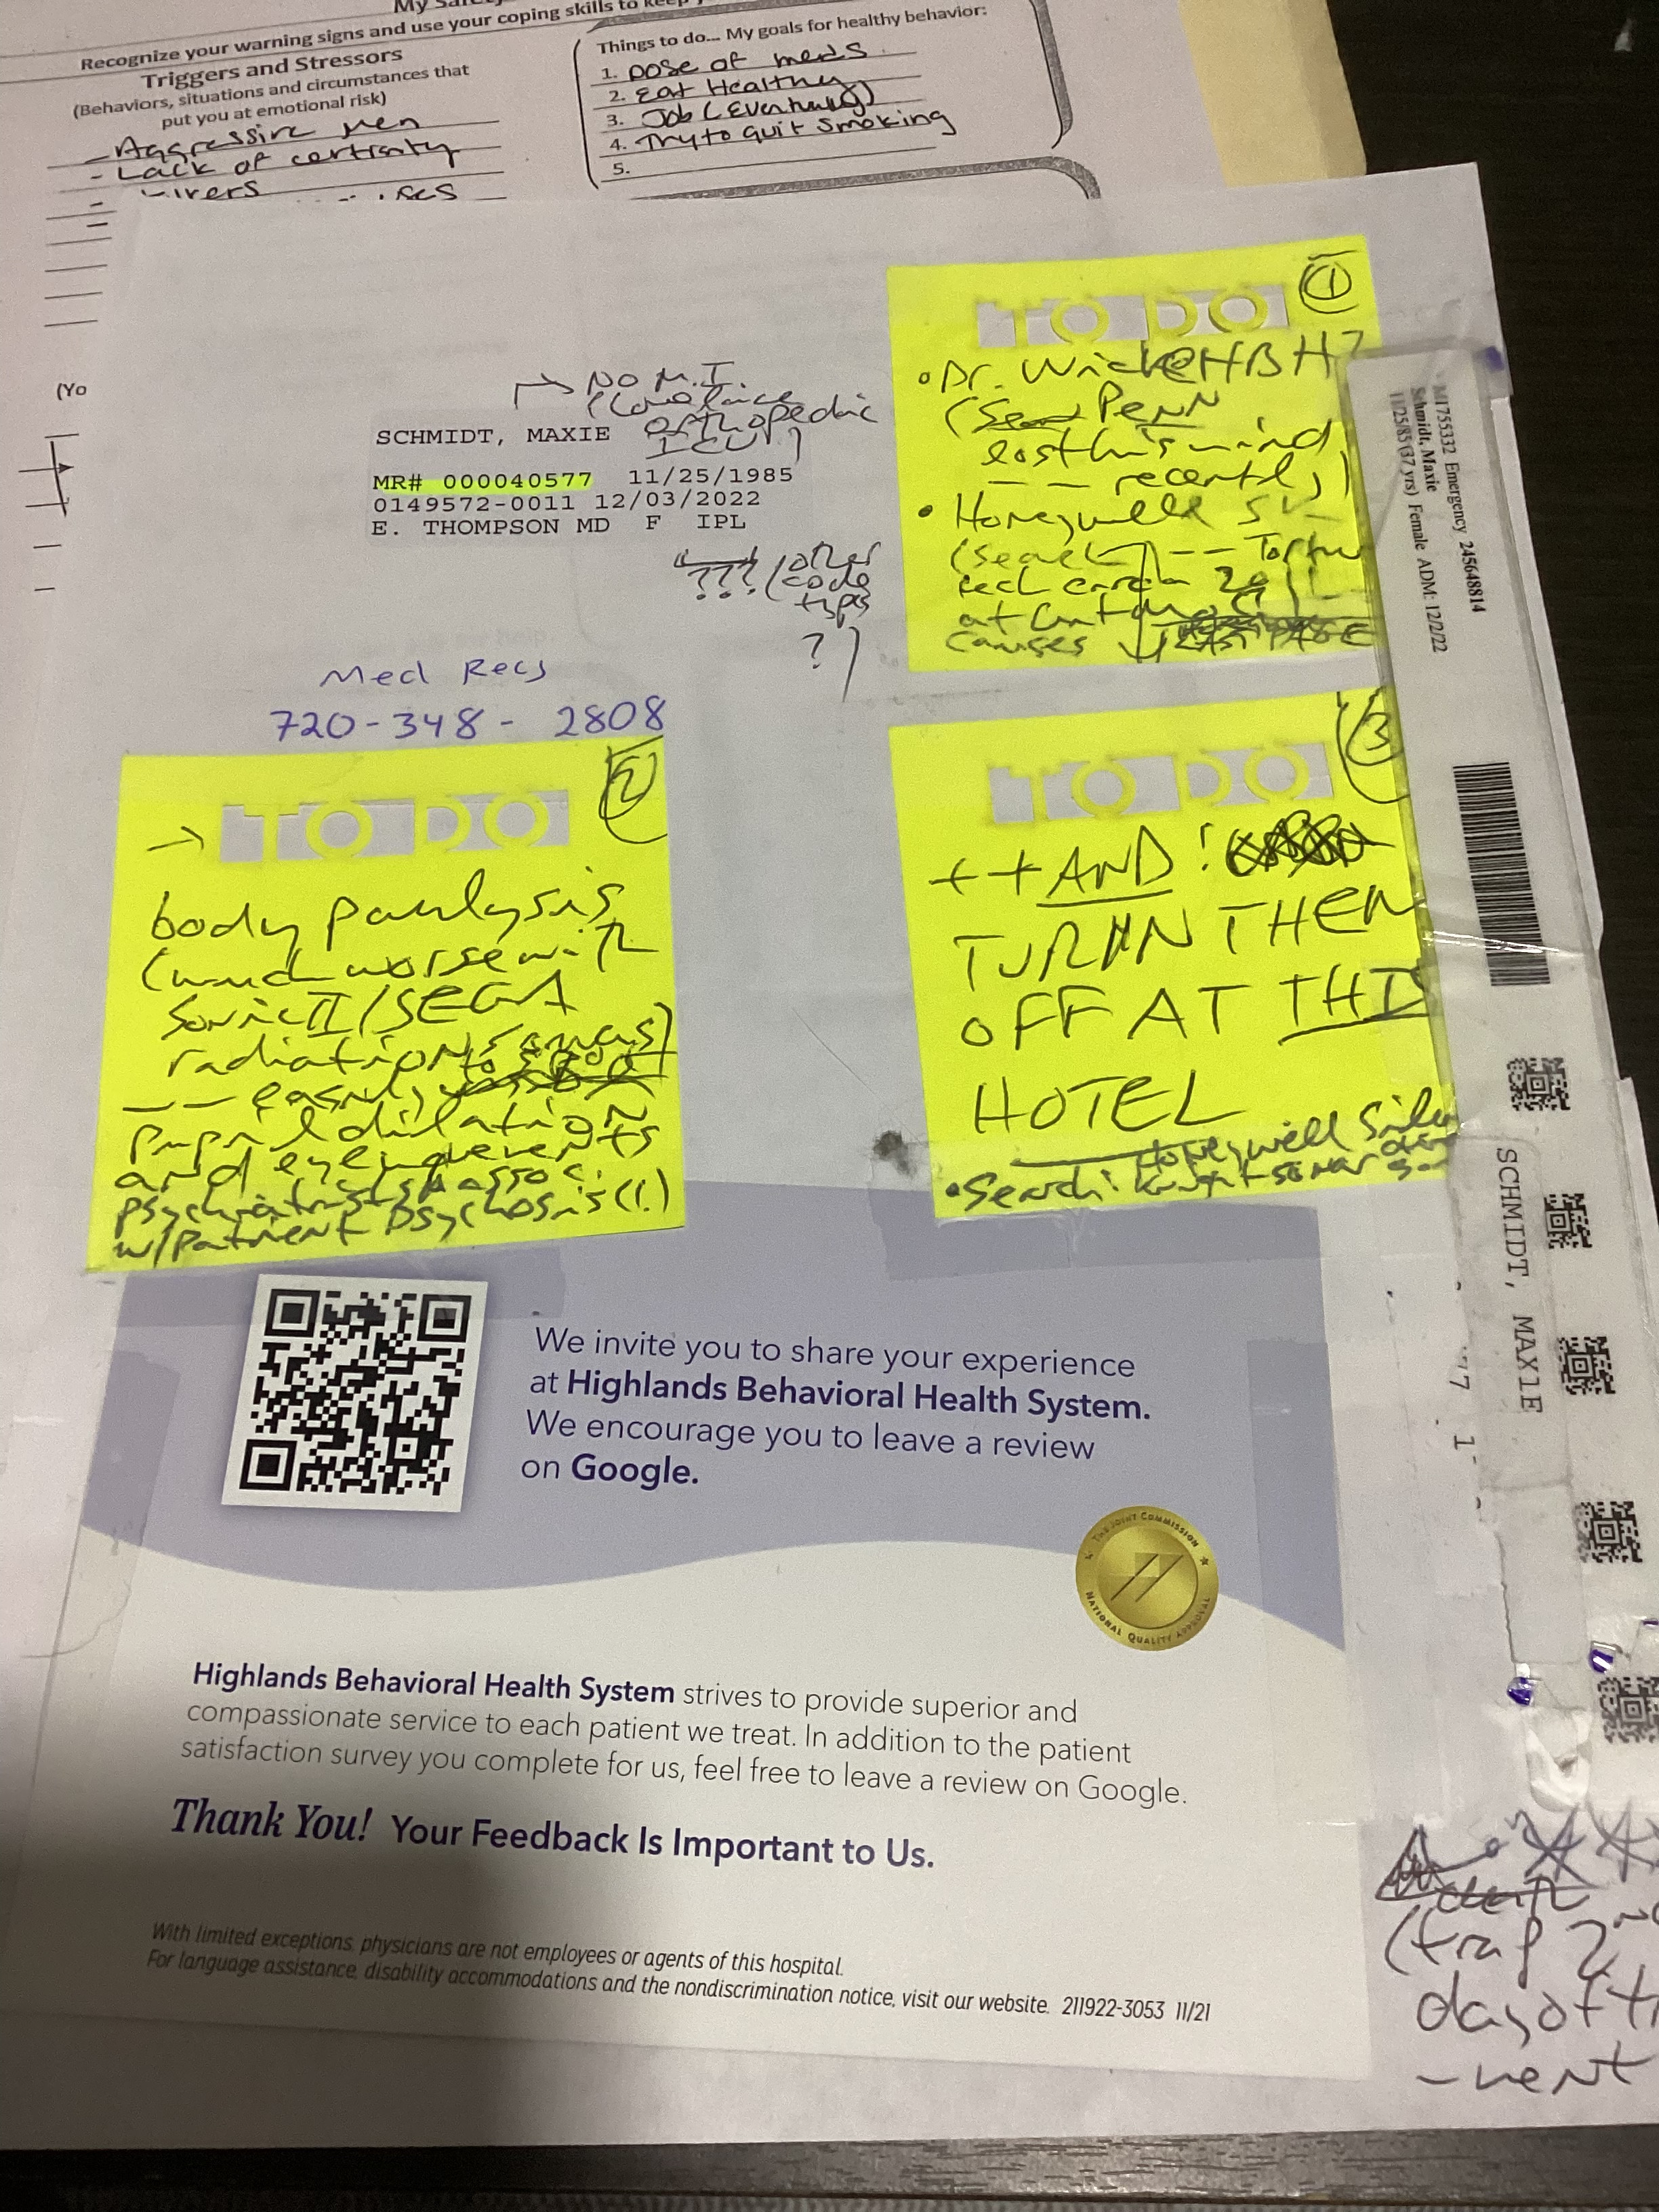 Recognize your warning signs and use your coping skills to
Triggers and Stressors
(Behaviors, situations and circumstances that
put you at emotional risk)
- Aggressive men
- Lack of certainty
Things to do... My goals for healthy behavior:
1. Dose of meds
2. Eat Healthy
3. Job (Eventually)
4. Try to quit smoking
5.
(Yo
→ NO M.I.
orthopedic
ICU?)
SCHMIDT, MAXIE
MR# 000040577 11/25/1985
0149572-0011 12/03/2022
E. THOMPSON MD F IPL
??? (other
code
types
?)
Med Recs
720-348-2808
1
TO DO
• Dr. @HBH?
(Sean Penn
lost his mind
-- recently)
• Honeywell
(search) --
at
causes
2
→ TO DO
body paralysis
(much worse with
Sonic II/SEGA
radiation
-- easily
pupil dilation
and eye movements
psychiatrists assoc.
w/patient psychosis(!)
3
TO DO
++AND!
TURN THEM
OFF AT THI
HOTEL
• Search: Honeywell
Knight sonar
M1755332 Emergency 245648814
Schmidt, Maxie
11/25/85 (37 yrs) Female ADM: 12/2/22
SCHMIDT, MAXIE
We invite you to share your experience
at Highlands Behavioral Health System.
We encourage you to leave a review
on Google.
THE JOINT COMMISSION
NATIONAL QUALITY APPROVAL
Highlands Behavioral Health System strives to provide superior and
compassionate service to each patient we treat. In addition to the patient
satisfaction survey you complete for us, feel free to leave a review on Google.
Thank You! Your Feedback Is Important to Us.
With limited exceptions, physicians are not employees or agents of this hospital.
For language assistance, disability accommodations and the nondiscrimination notice, visit our website. 211922-3053 11/21
(trap 2nd
day of
-ment